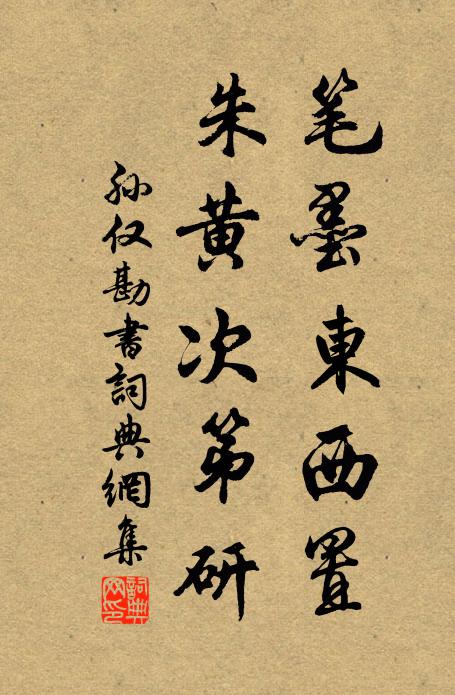 笔墨東西置
朱黄次第研
孙仅勘書詞典網集
詞典网印